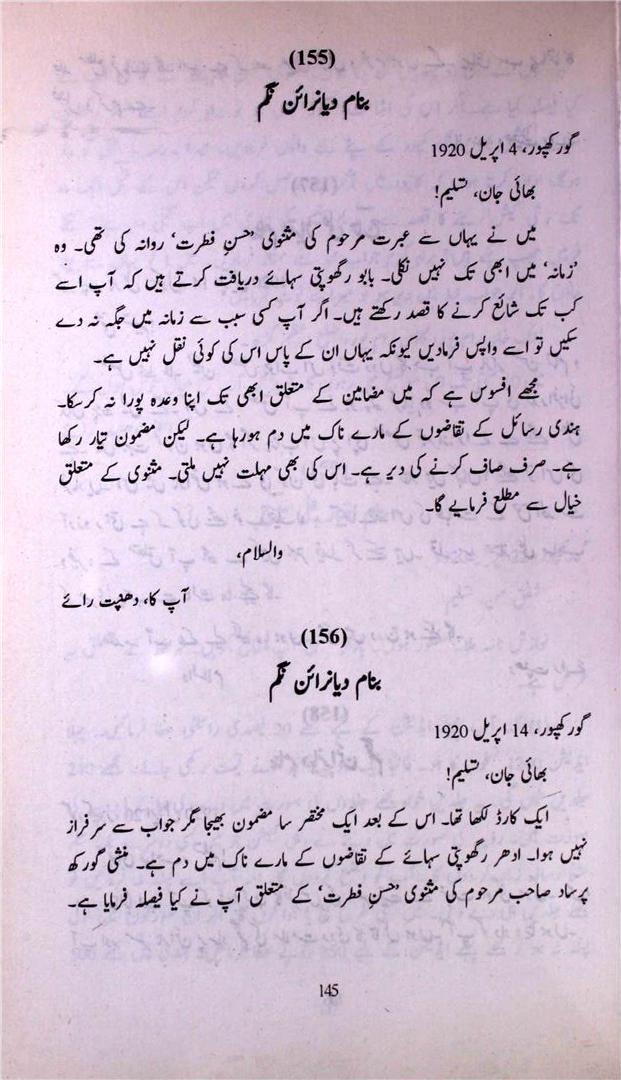 (155)
بنام دیانرائن نگم
گورکھپور، 4 اپریل 1920
بھائی جان، تسلیم!
میں نے یہاں سے عبرت مرحوم کی مثنوی ’حسنِ فطرت‘ روانہ کی تھی۔ وہ
’زمانہ‘ میں ابھی تک نہیں نکلی۔ بابو رگھوپتی سہائے دریافت کرتے ہیں کہ آپ اسے
کب تک شائع کرنے کا قصد رکھتے ہیں۔ اگر آپ کسی سبب سے زمانہ میں جگہ نہ دے
سکیں تو اسے واپس فرمادیں کیونکہ یہاں ان کے پاس اس کی کوئی نقل نہیں ہے۔
مجھے افسوس ہے کہ میں مضامین کے متعلق ابھی تک اپنا وعدہ پورا نہ کرسکا۔
ہندی رسائل کے تقاضوں کے مارے ناک میں دم ہورہا ہے۔ لیکن مضمون تیار رکھا
ہے۔ صرف صاف کرنے کی دیر ہے۔ اس کی بھی مہلت نہیں ملتی۔ مثنوی کے متعلق
خیال سے مطلع فرمایے گا۔
والسلام،
آپ کا، دھنپت رائے
(156)
بنام دیانرائن نگم
گورکھپور، 14 اپریل 1920
بھائی جان، تسلیم!
ایک کارڈ لکھا تھا۔ اس کے بعد ایک مختصر سا مضمون بھیجا مگر جواب سے سرفراز
نہیں ہوا۔ ادھر رگھوپتی سہائے کے تقاضوں کے مارے ناک میں دم ہے۔ منشی گورکھ
پرساد صاحب مرحوم کی مثنوی ’حسنِ فطرت‘ کے متعلق آپ نے کیا فیصلہ فرمایا ہے۔
145